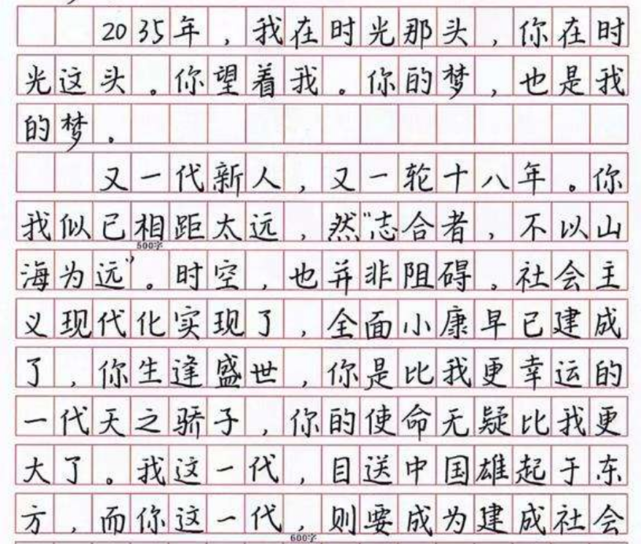 2035年，我在时光那头，你在时
光这头。你望着我。你的梦，也是我
的梦。
又一代新人，又一轮十八年。你
我似已相距太远，然“志合者，不以山
500字
海为远”。时空，也并非阻碍。社会主
义现代化实现了，全面小康早已建成
了，你生逢盛世，你是比我更幸运的
一代天之骄子，你的使命无疑比我更
大了。我这一代，目送中国雄起于东
方，而你这一代，则要成为建成社会
600字